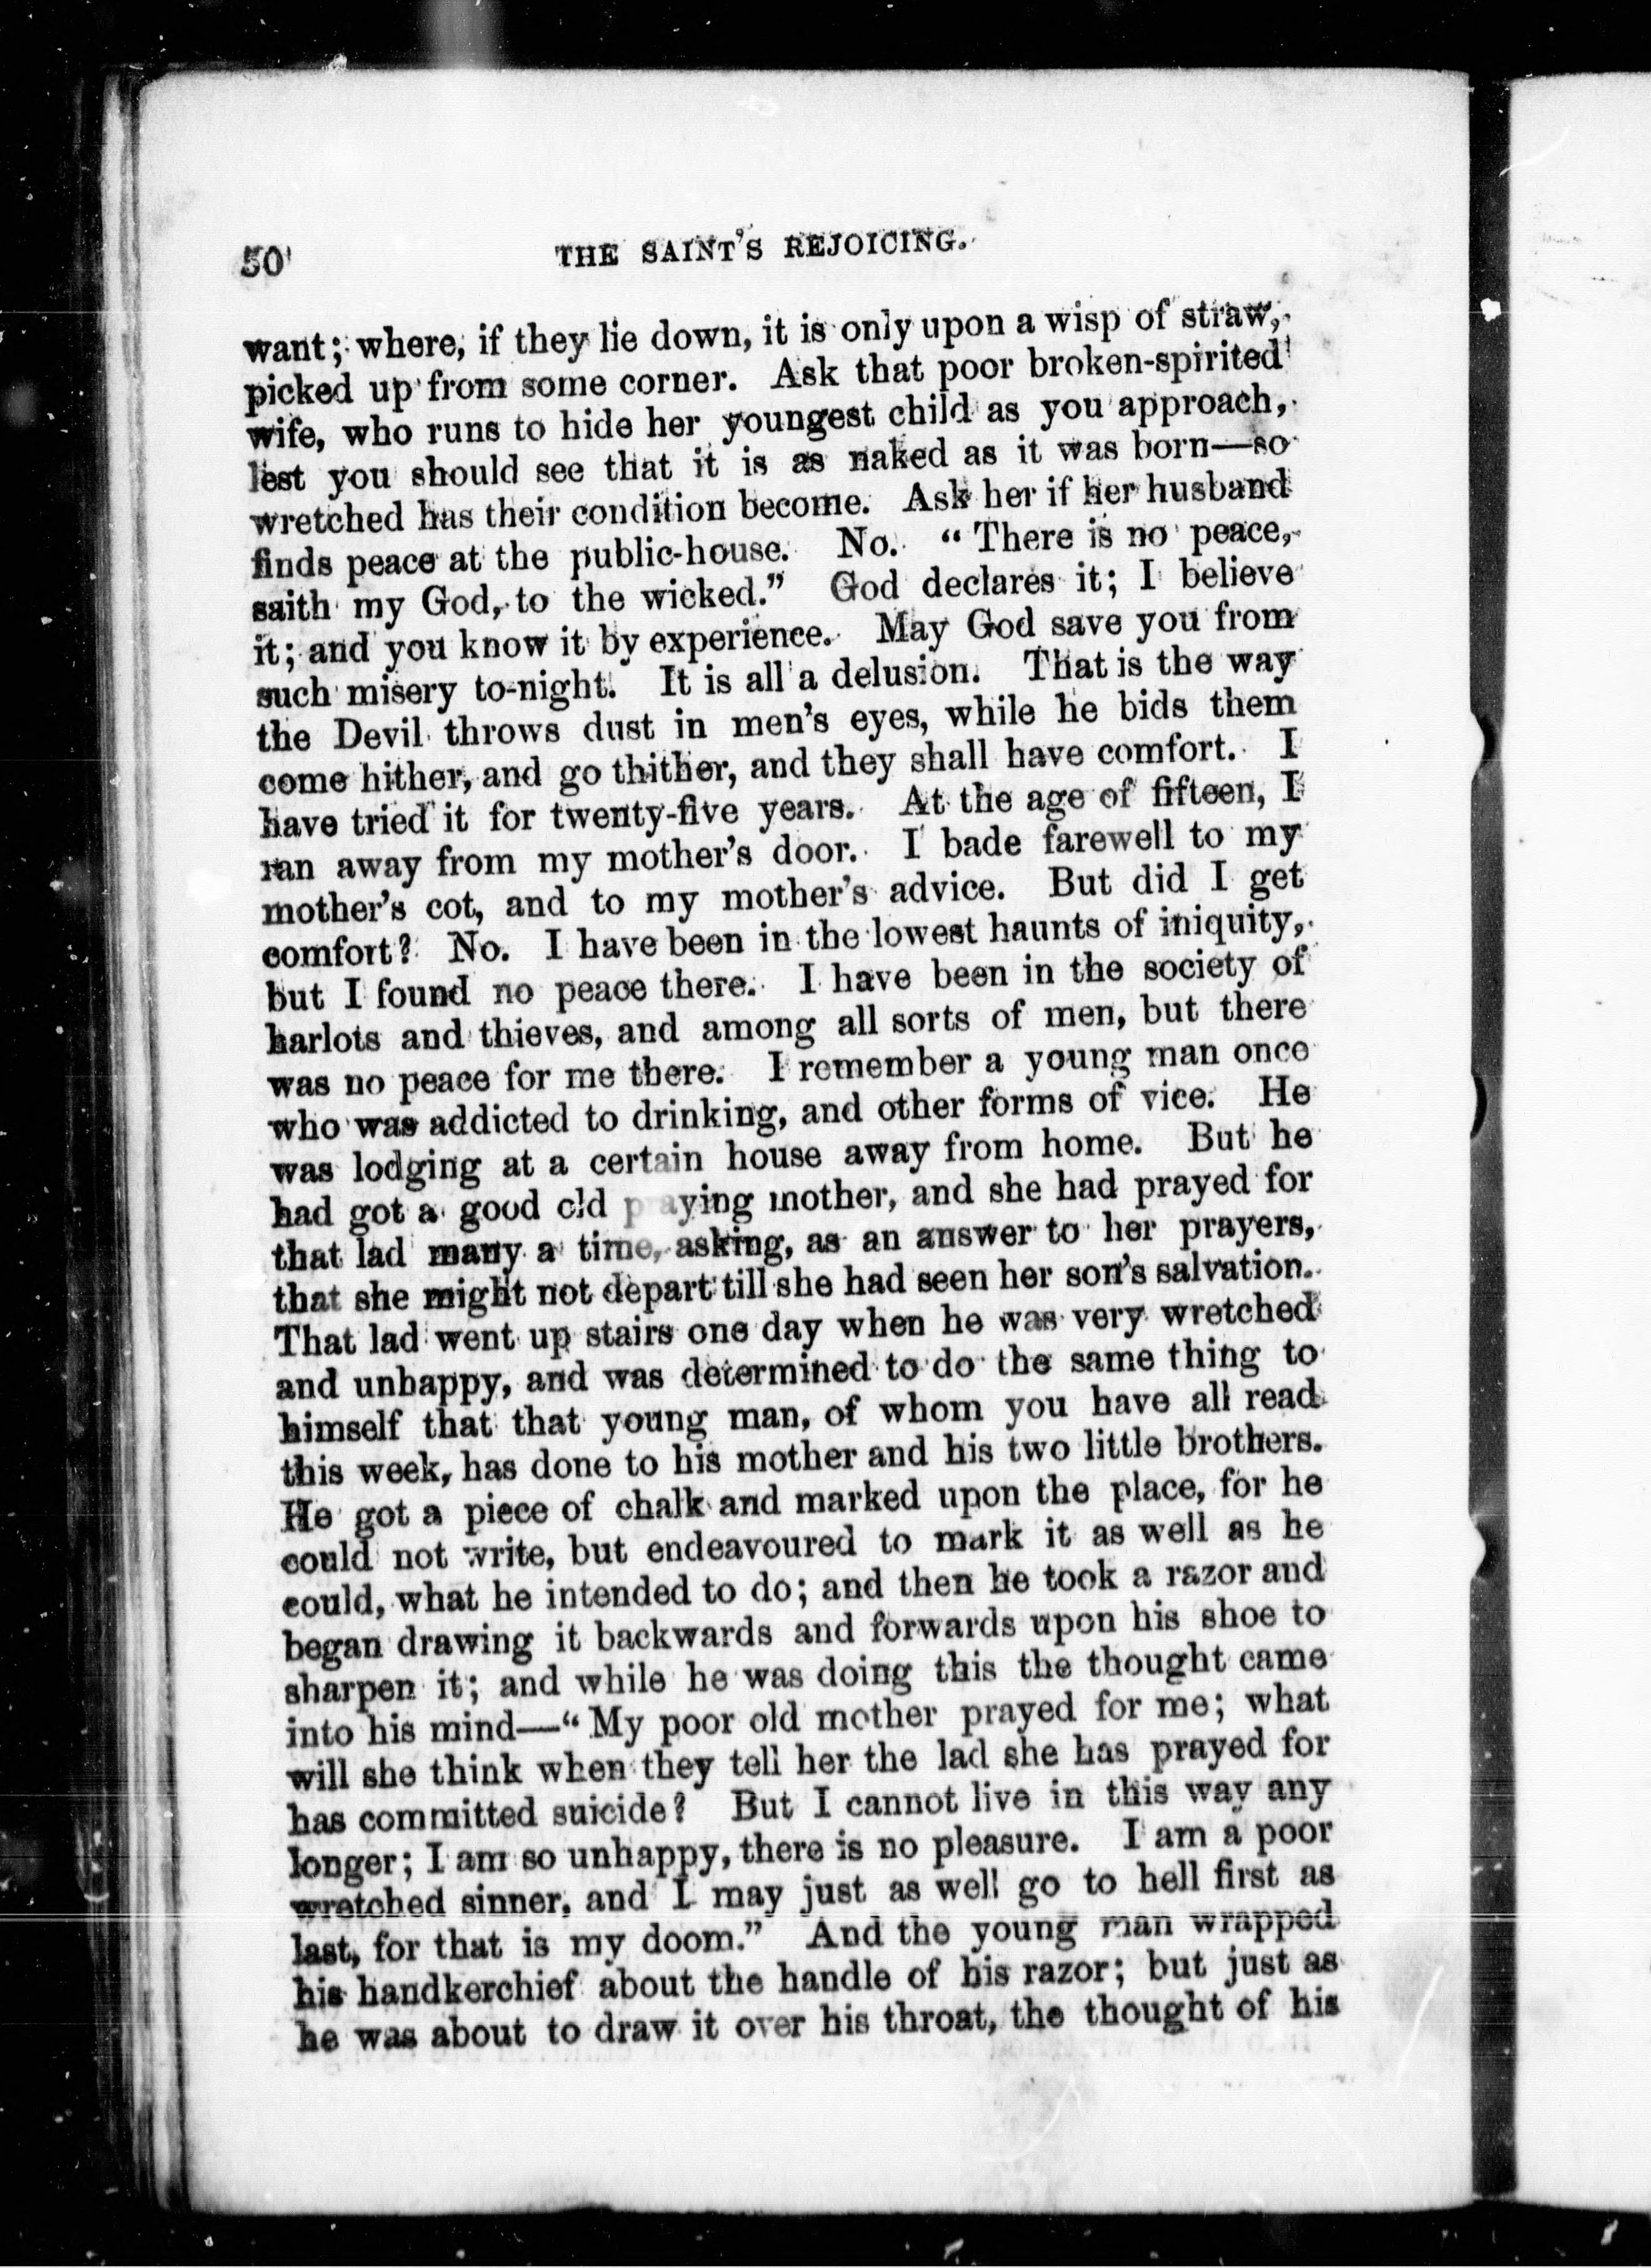 50
THE SAINT'S REJOICING.
want; where, if they lie down, it is only upon a wisp of straw,
picked up from some corner. Ask that poor broken-spirited
wife, who runs to hide her youngest child as you approach,
lest you should see that it is as naked as it was born—so
wretched has their condition become. Ask her if her husband
finds peace at the public-house. No. "There is no peace,
saith my God, to the wicked." God declares it; I believe
it; and you know it by experience. May God save you from
such misery to-night. It is all a delusion. That is the way
the Devil throws dust in men's eyes, while he bids them
come hither, and go thither, and they shall have comfort. I
have tried it for twenty-five years. At the age of fifteen, I
ran away from my mother's door. I bade farewell to my
mother's cot, and to my mother's advice. But did I get
comfort? No. I have been in the lowest haunts of iniquity,
but I found no peace there. I have been in the society of
harlots and thieves, and among all sorts of men, but there
was no peace for me there. I remember a young man once
who was addicted to drinking, and other forms of vice. He
was lodging at a certain house away from home. But he
had got a good old praying mother, and she had prayed for
that lad many a time, asking, as an answer to her prayers,
that she might not depart till she had seen her son's salvation.
That lad went up stairs one day when he was very wretched
and unhappy, and was determined to do the same thing to
himself that that young man, of whom you have all read
this week, has done to his mother and his two little brothers.
He got a piece of chalk and marked upon the place, for he
could not write, but endeavoured to mark it as well as he
could, what he intended to do; and then he took a razor and
began drawing it backwards and forwards upon his shoe to
sharpen it; and while he was doing this the thought came
into his mind—"My poor old mother prayed for me; what
will she think when they tell her the lad she has prayed for
has committed suicide? But I cannot live in this way any
longer; I am so unhappy, there is no pleasure. I am a poor
wretched sinner, and I may just as well go to hell first as
last, for that is my doom." And the young man wrapped
his handkerchief about the handle of his razor; but just as
he was about to draw it over his throat, the thought of his